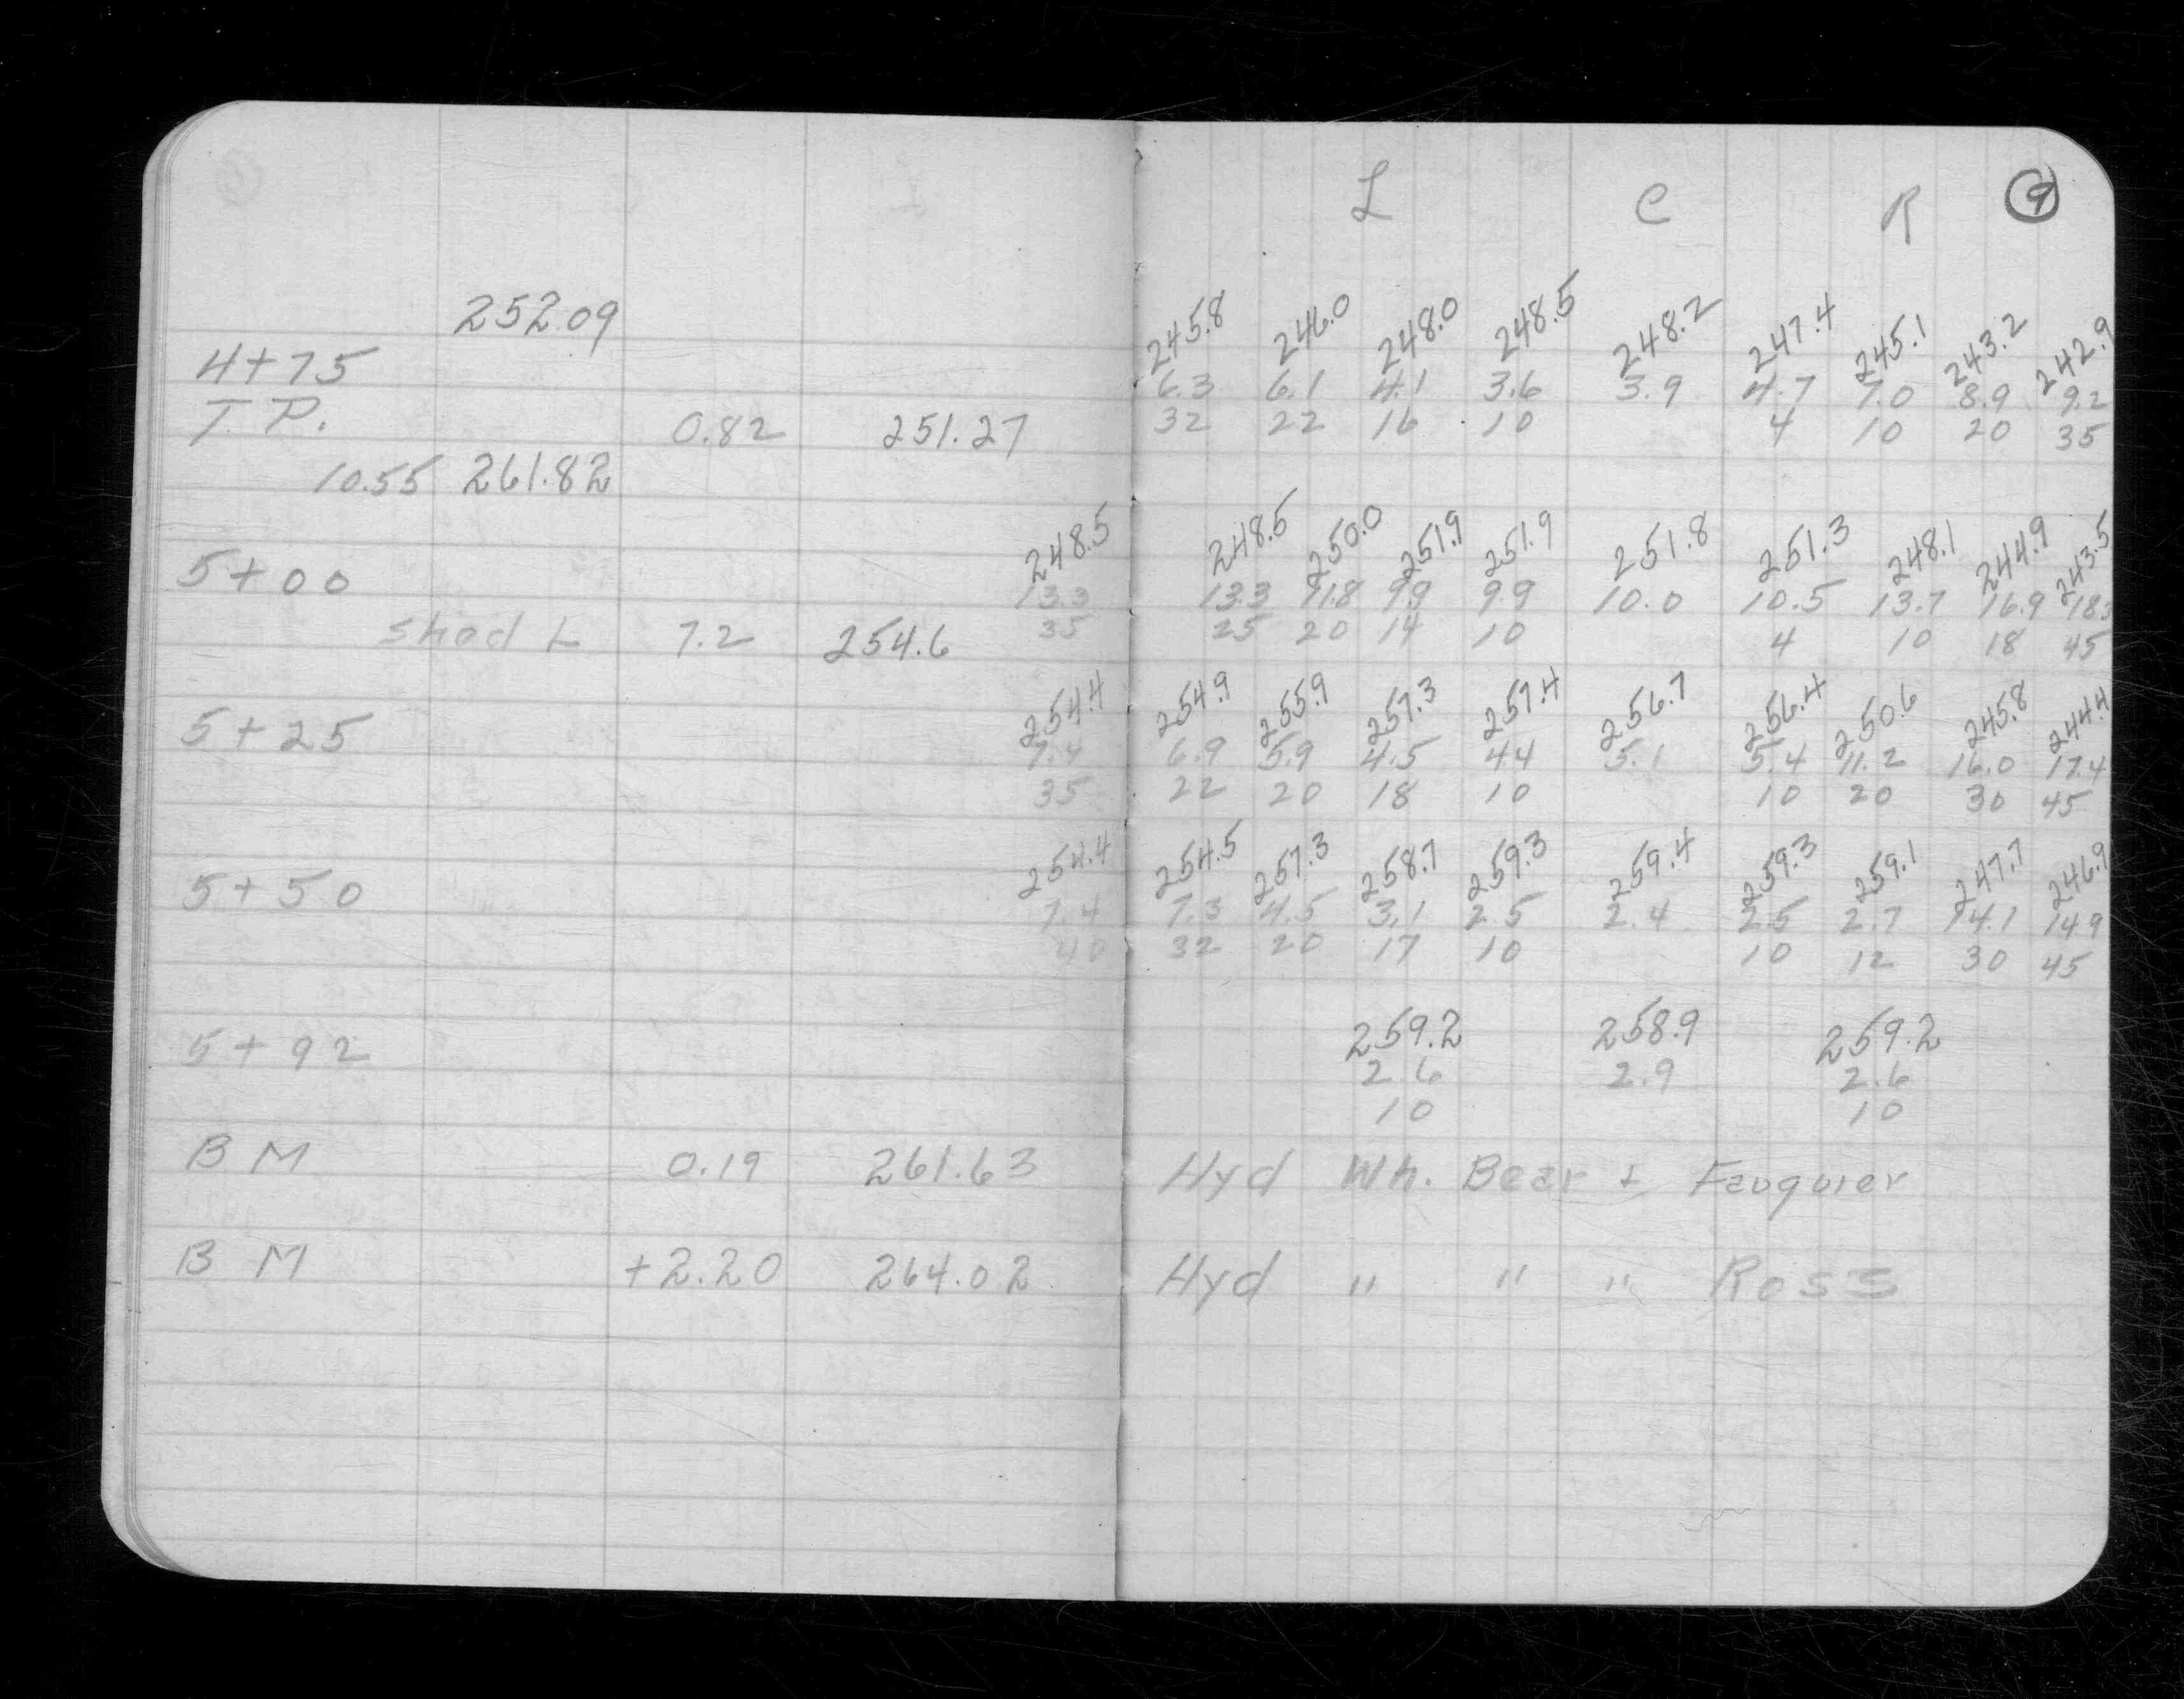 L C R 9
252.09 245.8 246.0 248.0 248.5 248.2 247.4 245.1 243.2 242.9
4+75 6.3 6.1 4.1 3.6 3.9 4.7 7.0 8.9 9.2
T.P. 0.82 251.27 32 22 16 10 4 10 20 35
10.55 261.82
248.5 248.5 250.0 251.9 251.9 251.8 251.3 248.1 244.9 243.5
5+00 13.3 13.3 11.8 9.9 9.9 10.0 10.5 13.7 16.9 18.3
Shed L 7.2 254.6 35 25 20 14 10 4 10 18 45
254.4 254.9 255.9 257.3 257.4 256.7 256.4 250.6 245.8 244.4
5+25 7.4 6.9 5.9 4.5 44 5.1 5.4 11.2 16.0 17.4
35 22 20 18 10 10 20 30 45
254.4 254.5 257.3 258.7 259.3 259.4 259.3 259.1 247.7 246.9
5+50 7.4 7.3 4.5 3.1 2.5 2.4 2.5 2.7 14.1 149
40 32 20 17 10 10 12 30 45
259.2 258.9 259.2
5+92 2.6 2.9 2.6
10 10
BM 0.19 261.63 Hyd Wh. Bear + Fauquier
BM +2.20 264.02 Hyd " " " Ross